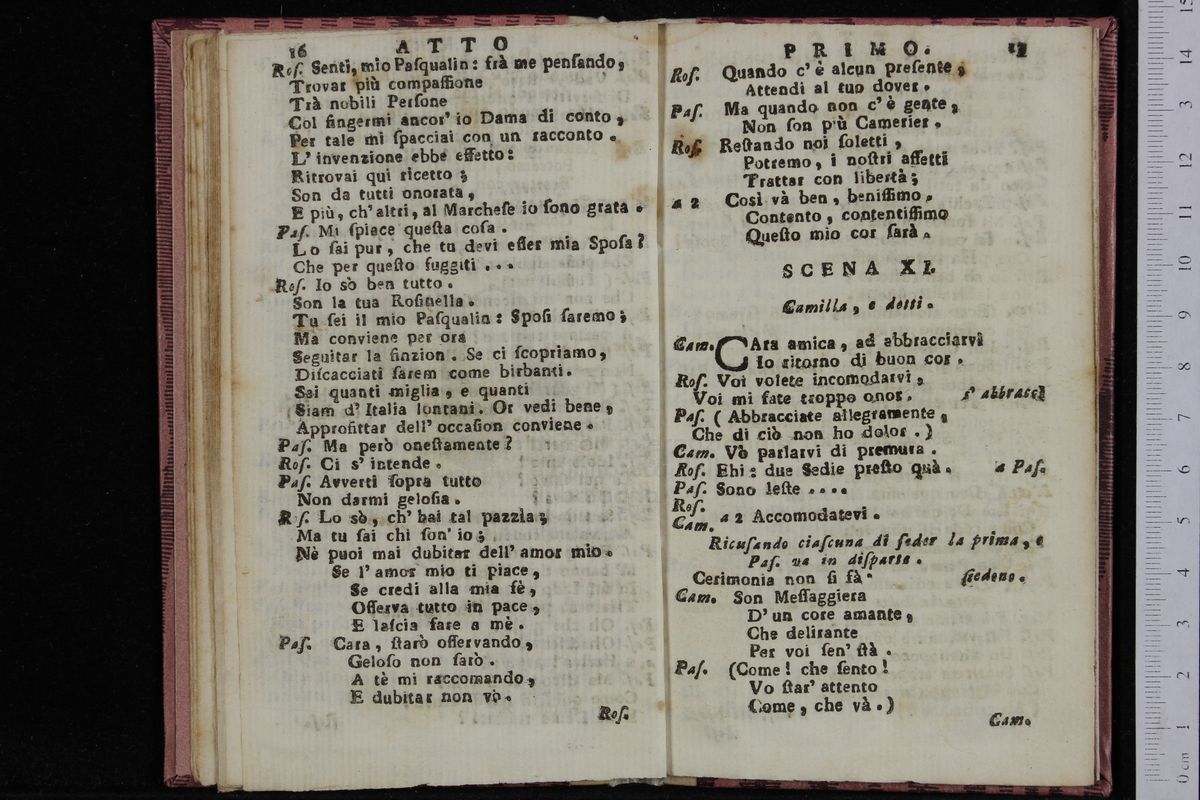 16 ATTO
Roſ. Senti, mio Paſqualin: frà me penſando,
Trovar più compaſſione
Trà nobili Perſone
Col fingermi ancor' io Dama di conto,
Per tale mi ſpacciai con un racconto.
L' invenzione ebbe effetto:
Ritrovai qui ricetto;
Son da tutti onorata,
E più, ch'altri, al Marcheſe io ſono grata.
Paſ. Mi ſpiace queſta coſa.
Lo ſai pur, che tu devi eſſer mia Spoſa?
Che per queſto fuggiti...
Roſ. Io sò ben tutto.
Son la tua Roſinella.
Tu ſei il mio Paſqualin: Spoſi ſaremo;
Ma conviene per ora
Seguitar la finzion. Se ci ſcopriamo,
Diſcacciati ſarem come birbanti.
Sai quanti miglia, e quanti
Siam d' Italia lontani. Or vedi bene,
Approfittar dell' occaſion conviene.
Paſ. Ma però oneſtamente?
Roſ. Ci s' intende.
Paſ. Avverti ſopra tutto
Non darmi geloſia.
R ſ. Lo sò, ch' hai tal pazzìa;
Ma tu ſai chi ſon' io;
Nè puoi mai dubitar dell' amor mio.
Se l' amor mio ti piace,
Se credi alla mia fè,
Oſſerva tutto in pace,
E laſcia fare a mè.
Paſ. Cara, ſtarò oſſervando,
Geloſo non ſarò.
A tè mi raccomando,
E dubitar non vò.
Roſ.
PRIMO. 17
Roſ. Quando c' è alcun preſente,
Attendi al tuo dover.
Paſ. Ma quando non c' è gente,
Non ſon più Camerier.
Roſ. Reſtando noi ſoletti,
Potremo, i noſtri affetti
Trattar con libertà;
a 2 Così và ben, beniſſimo.
Contento, contentiſſimo
Queſto mio cor ſarà.
SCENA XI.
Camilla, e detti.
Cam. CAra amica, ad abbracciarvi
Io ritorno di buon cor.
Roſ. Voi volete incomodarvi,
Voi mi fate troppo onor. s' abbracci
Paſ. (Abbracciate allegramente,
Che di ciò non ho dolor.)
Cam. Vò parlarvi di premura.
Roſ. Ehi: due Sedie preſto quà. a Paſ.
Paſ. Sono leſte....
Roſ.
Cam. a 2 Accomodatevi.
Ricuſando ciaſcuna di ſeder la prima, e
Paſ. va in diſparte.
Cerimonia non ſi fà. ſiedono.
Cam. Son Meſſaggiera
D' un core amante,
Che delirante
Per voi ſen' ſtà.
Paſ. (Come! che ſento!
Vo ſtar' attento
Come, che và.)
Cam.